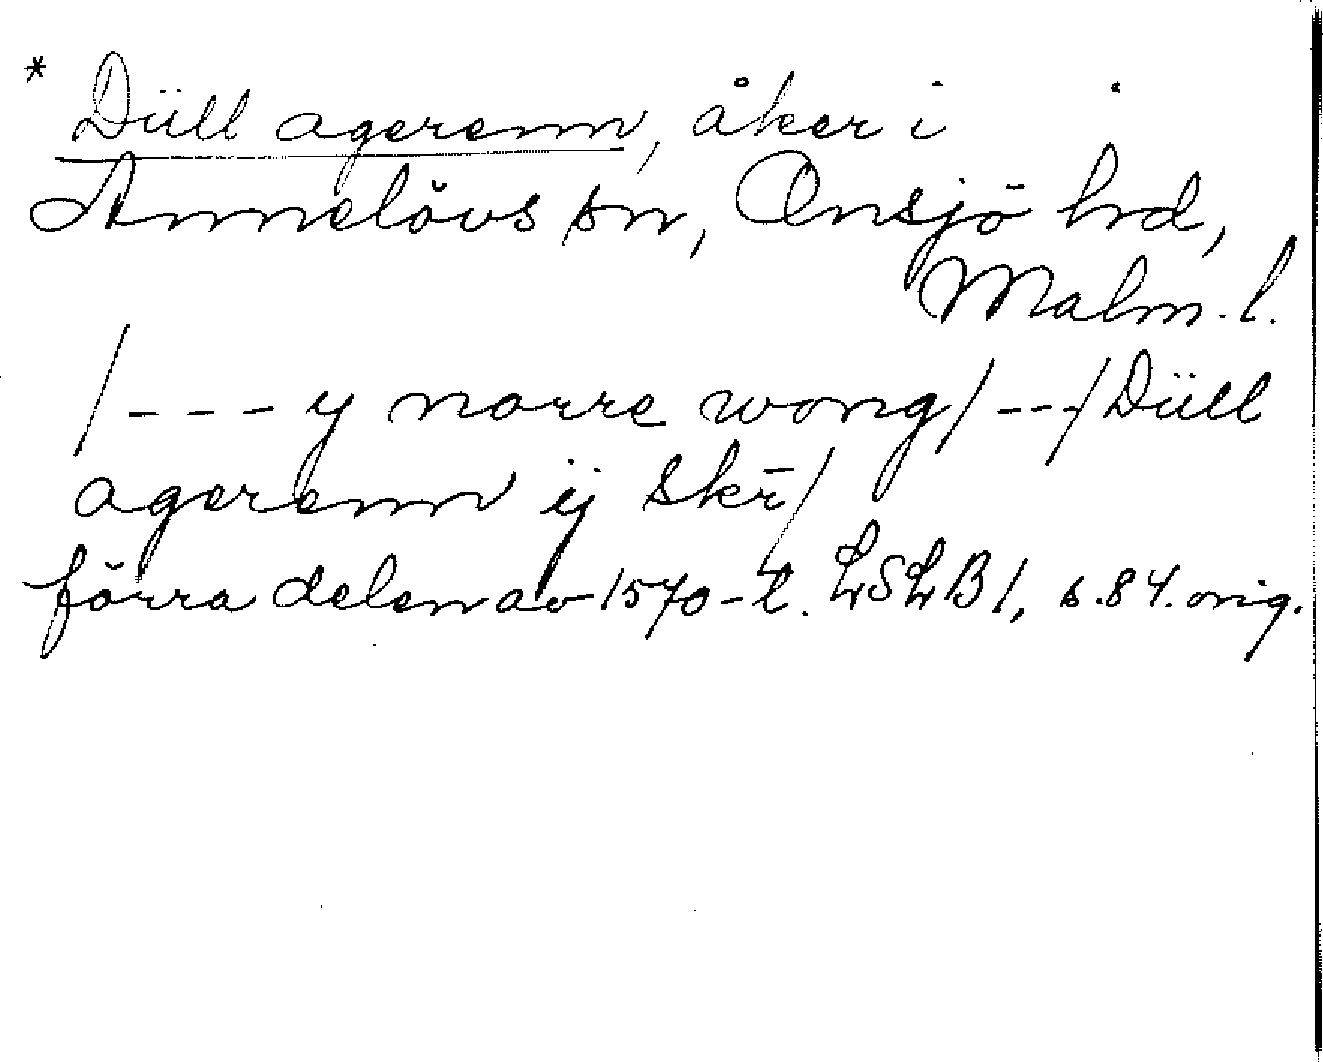 * Düll agerenn, åker i
Annelövs sn, Onsjö hd,
Malm. l.
/--- y norre wong/---/Düll
agerenn ij skr̄/
förra delen av 1570-t. LSLB 1, s. 84. orig.